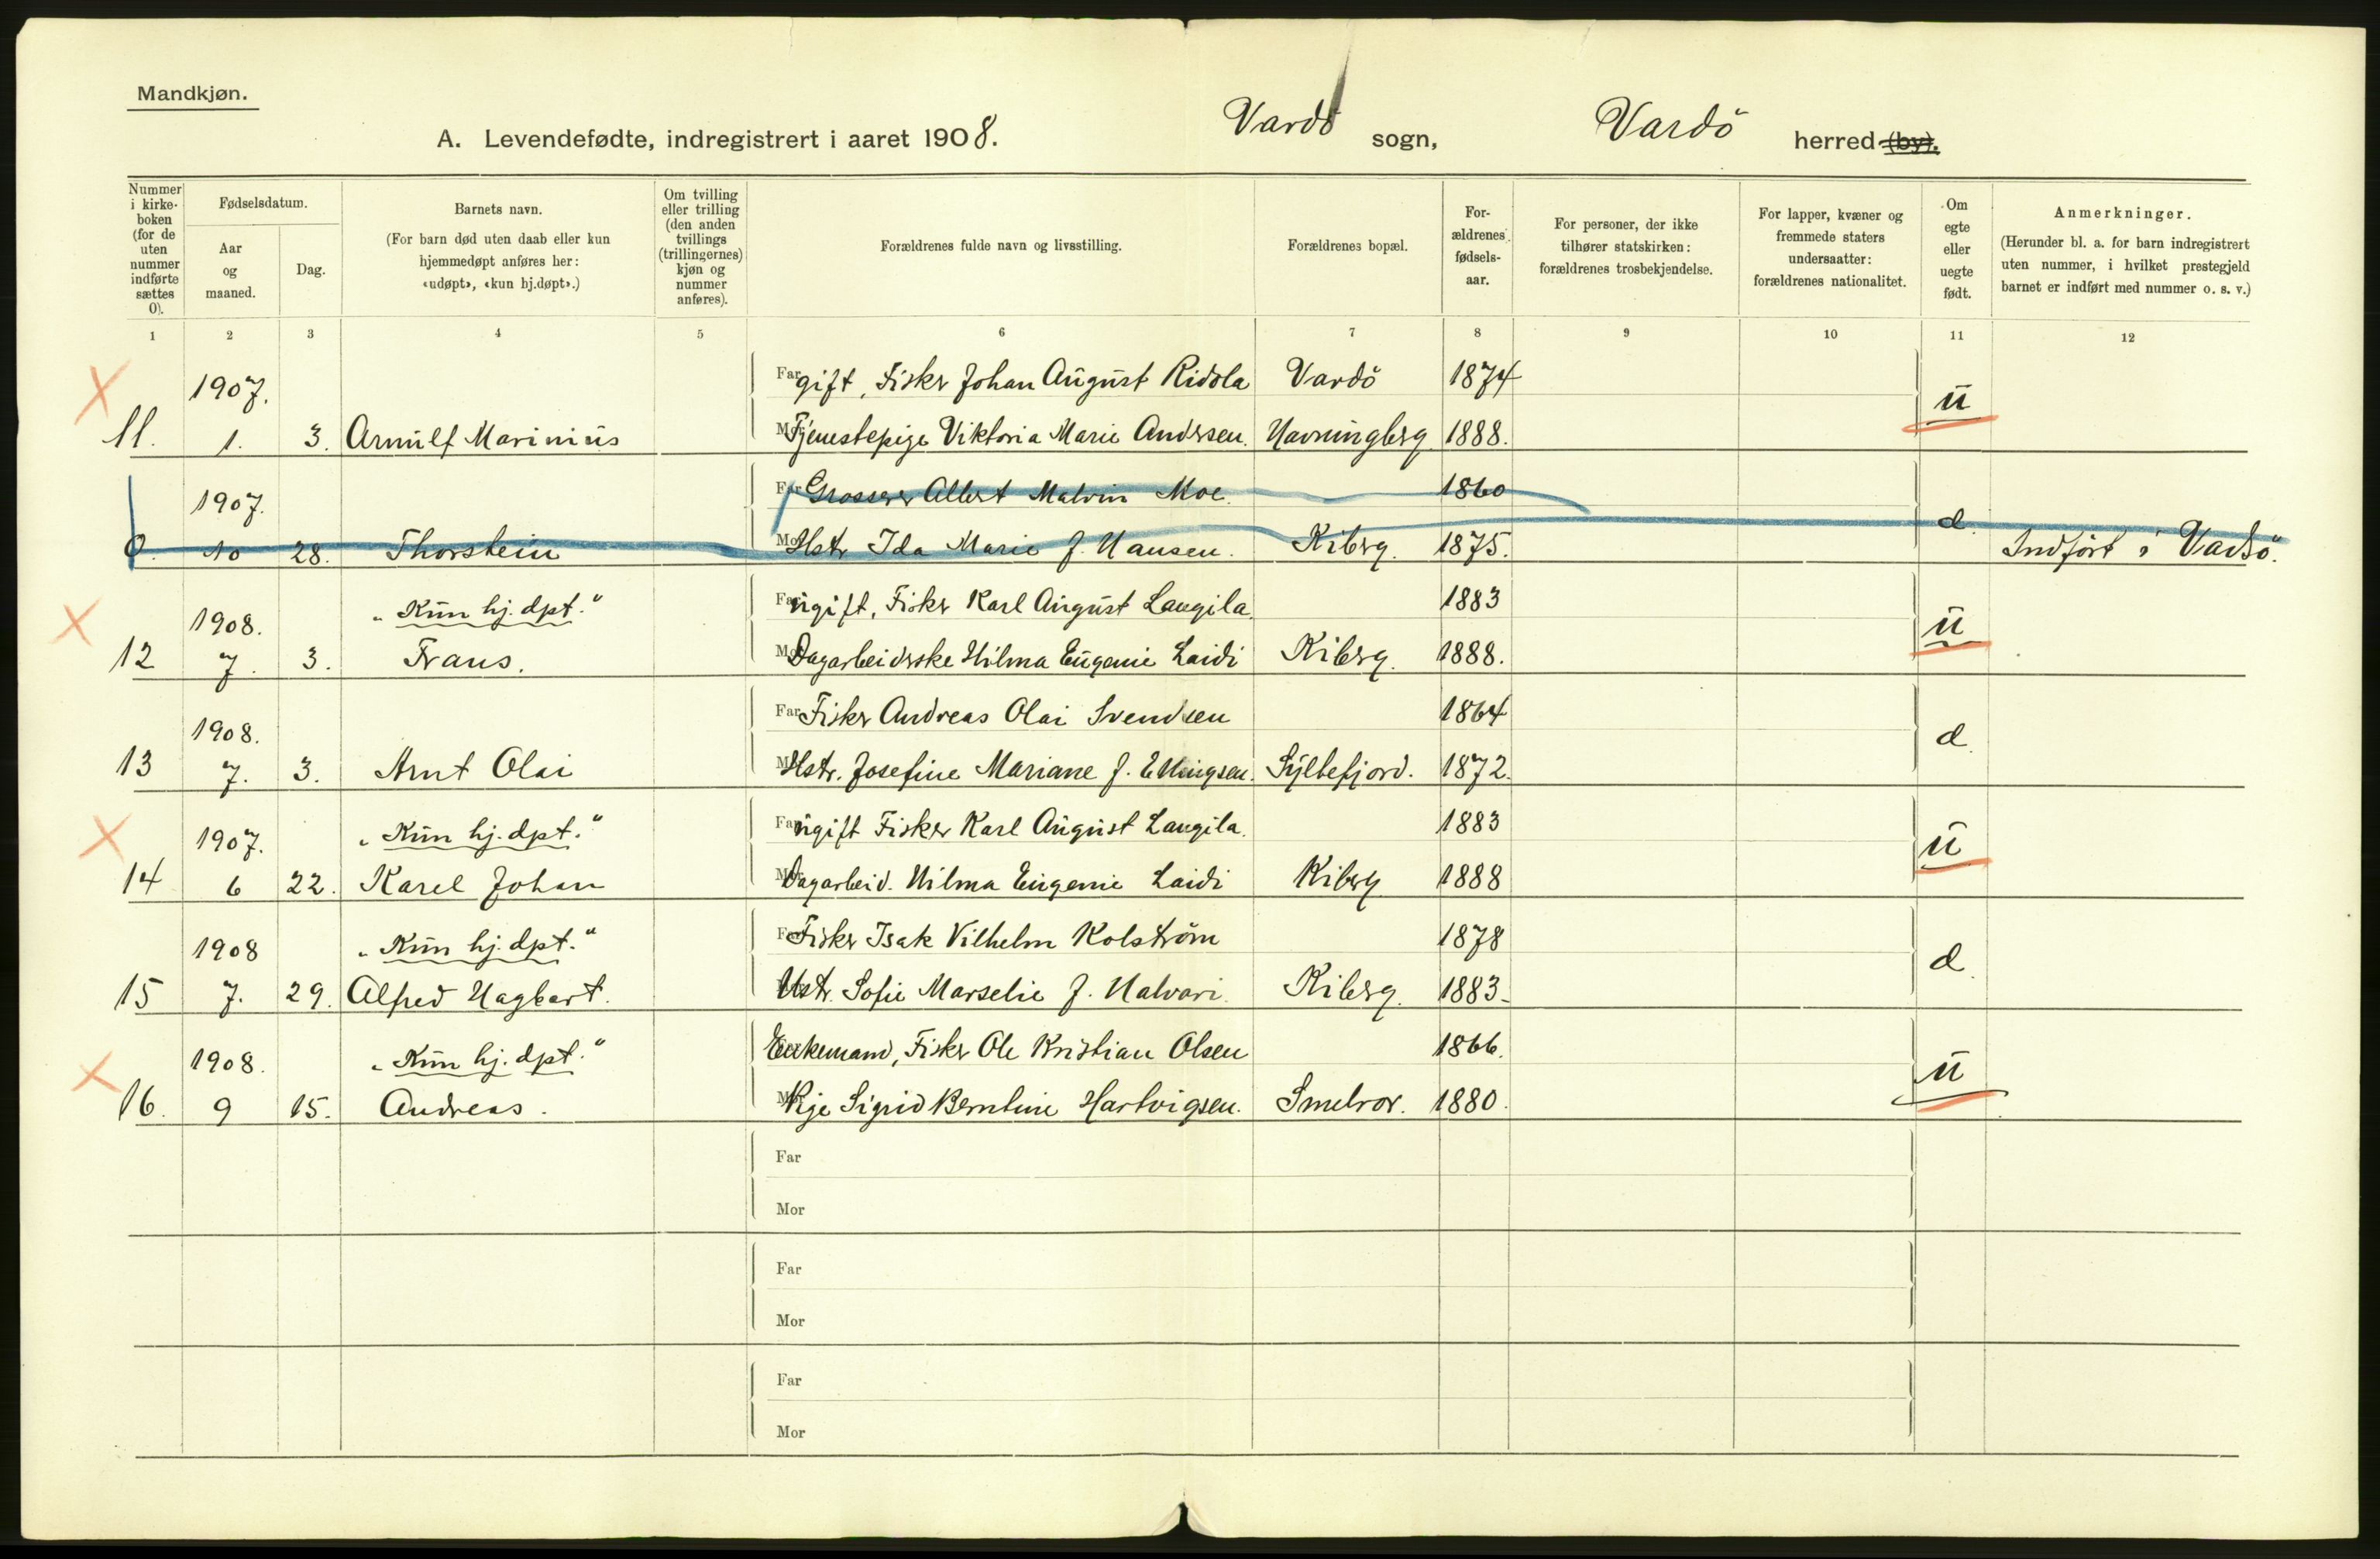 Mandkjøn.
A. Levendefødte, indregistrert i aaret 1908. Vardö sogn, Vardö herred (by).
Nummer i kirkeboken (for de uten nummer indførte sættes 0).
Fødselsdatum.
Aar og maaned.
Dag.
Barnets navn.
(For barn død uten daab eller kun hjemmedøpt anføres her: «udøpt», «kun hj.døpt».)
Om tvilling eller trilling (den anden tvillings (trillingernes) kjøn og nummer anføres).
Forældrenes fulde navn og livsstilling.
Forældrenes bopæl.
Forældrenes fødselsaar.
For personer, der ikke tilhører statskirken: forældrenes trosbekjendelse.
For lapper, kvæner og fremmede staters undersaatter: forældrenes nationalitet.
Om egte eller uegte født.
Anmerkninger.
(Herunder bl. a. for barn indregistrert uten nummer, i hvilket prestegjeld barnet er indført med nummer o. s. v.)
1 2 3 4 5 6 7 8 9 10 11 12
1907. Far gift, Fisker Johan August Ridola Vardö 1874 u
11. 1. 3. Arnulf Marinius Mor Tjenestepige Viktoria Marie Andersen. Havningberg 1888.
1907. Far Grosserer Albert Malvin Moe. 1860 d.
0. 10 28. Thorstein Mor Hstr Ida Marie f. Hansen. Kiberg. 1875. Indført i Vadsö.
1908. „Kun hj. dpt.“ Far ugift, Fisker Karl August Langila. 1883 u
12 7. 3. Frans. Mor Dagarbeiderske Hilma Eugenie Laidi Kiberg. 1888.
1908. Far Fisker Andreas Olai Svendsen 1864 d.
13 7. 3. Arnt Olai Mor Hstr. Josefine Mariane f. Ellingsen. Syltefjord. 1872.
1907. „Kun hj. dpt.“ Far ugift Fisker Karl August Langila. 1883 u
14 6 22. Karel Johan Mor Dagarbeid. Hilma Eugenie Laidi Kiberg 1888
1908 „Kun hj. dpt.“ Far Fisker Isak Vilhelm Kolström 1878 d.
15 7. 29. Alfred Hagbart. Hstr. Sofie Marselie f. Halvari. Kiberg. 1883.
1908. „Kun hj. dpt.“ Enkemand, Fisker Ole Kristian Olsen 1866. u
16. 9 15. Andreas. Mor Pige Sigrid Berntine Hartvigsen. Smelror. 1880.
Far
Mor
Far
Mor
Far
Mor